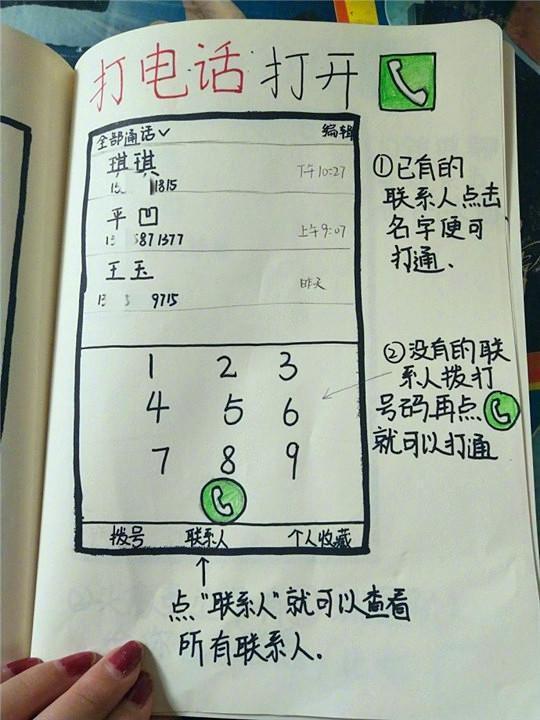 打电话 打开
全部通话 编辑
琪琪
1815 下午10:27
平 凹
5871377 上午9:07
王玉
9715 昨天
①已有的
联系人点击
名字便可
打通.
1 2 3
4 5 6
7 8 9
②没有的联
系人拨打
号码再点
就可以打通
拨号 联系人 个人收藏
点"联系人"就可以查看
所有联系人.